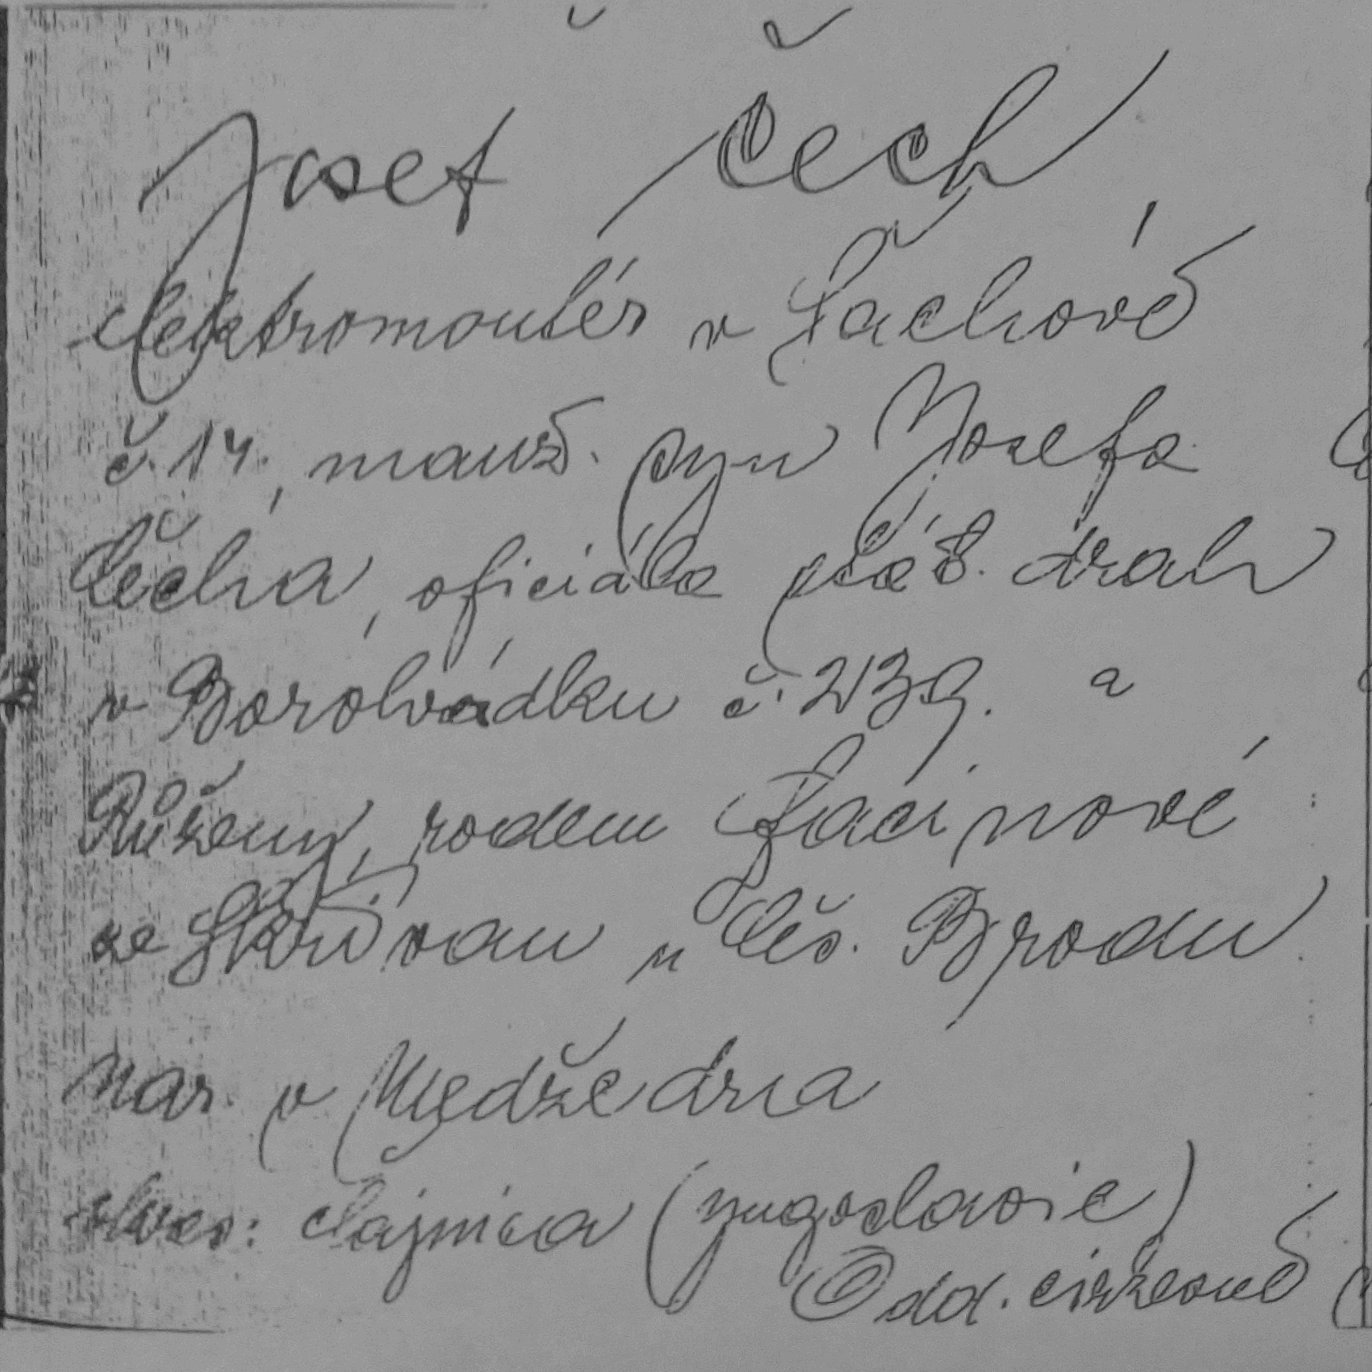 Josef Čech
elektromontér v Čachově
č. 14, manž. syn Josefa
Čecha, oficiála stát. drah
v Borohrádku č. 239. a
Růženy, rodem Račinové
ze Skřivan u Čes. Brodu.
Nar. v Medžedra
okres: (Jugoslavie)
Odd. církevně